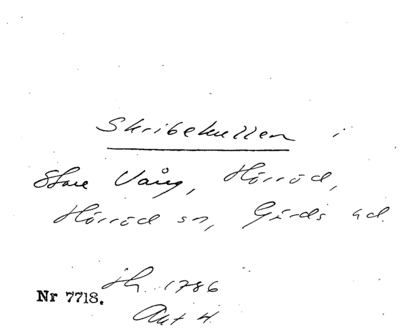 Skribekullen i
Store Vång, Hörröd,
Hörröd sn, Gärds hd.
Nr 7718.
jh. 1786
Akt 4.